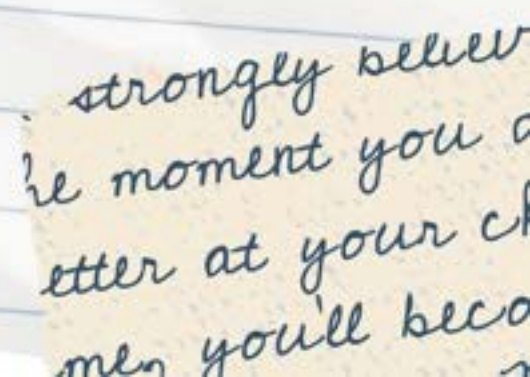 strongly believ
he moment you a
etter at your ch
me, you'll beco